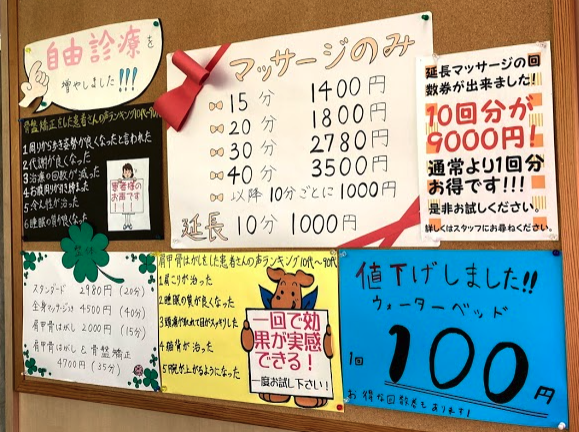 自由診療を
増やしました!!!
骨盤矯正をした患者さんの声ランキング10代~90代
1周りから歩き姿勢が良くなったと言われた
2代謝が良くなった
3治療の回数が減った
4お腹周りが引き締まった
6睡眠の質が良くなった
患者様の
お声です
マッサージのみ
15分 1400円
20分 1800円
30分 2780円
40分 3500円
以降10分ごとに1000円
延長 10分 1000円
延長マッサージの回
数券が出来ました!
10回分が
9000円!
通常より1回分
お得です!!!
是非お試しください。
詳しくはスタッフにお尋ねください。
整体
スタンダード 2980円(20分)
全身マッサージ 4500円(40分)
肩甲骨はがし 2000円(15分)
肩甲骨はがし&骨盤矯正
4700円(35分)
肩甲骨はがしをした患者さんの声ランキング10代~90代
1肩こりが治った
2睡眠の質が良くなった
3頭痛が取れて目がスッキリした
4猫背が治った
5腕が上がるようになった
一回で効
果が実感
できる!
一度お試し下さい!
値下げしました!!
ウォーターベッド
1回 100円
お得な回数券もあります!